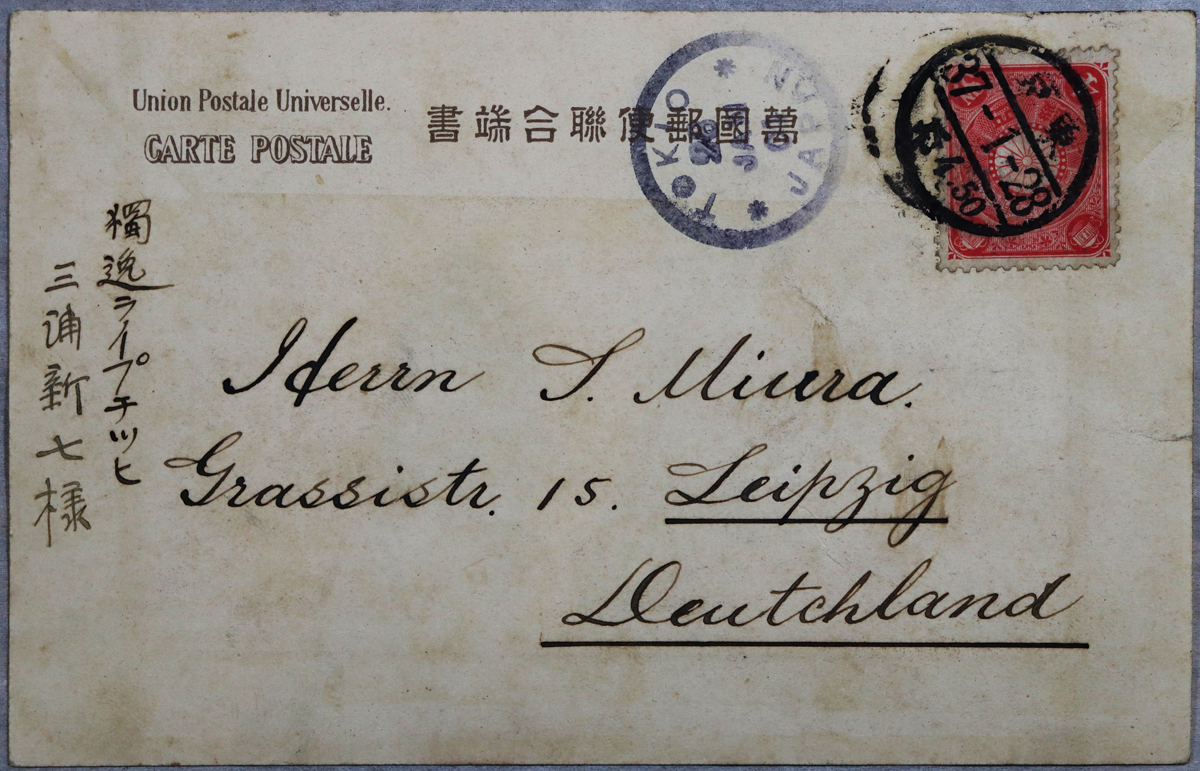 Union Postale Universelle.
CARTE POSTALE
書端合聯便郵國萬
TOKIO
28
JAN
JAPON
37-1-28
4.50
Herrn S. Miura.
Grassistr. 15. Leipzig
Deutchland
獨逸ライプチッヒ
三浦新七様